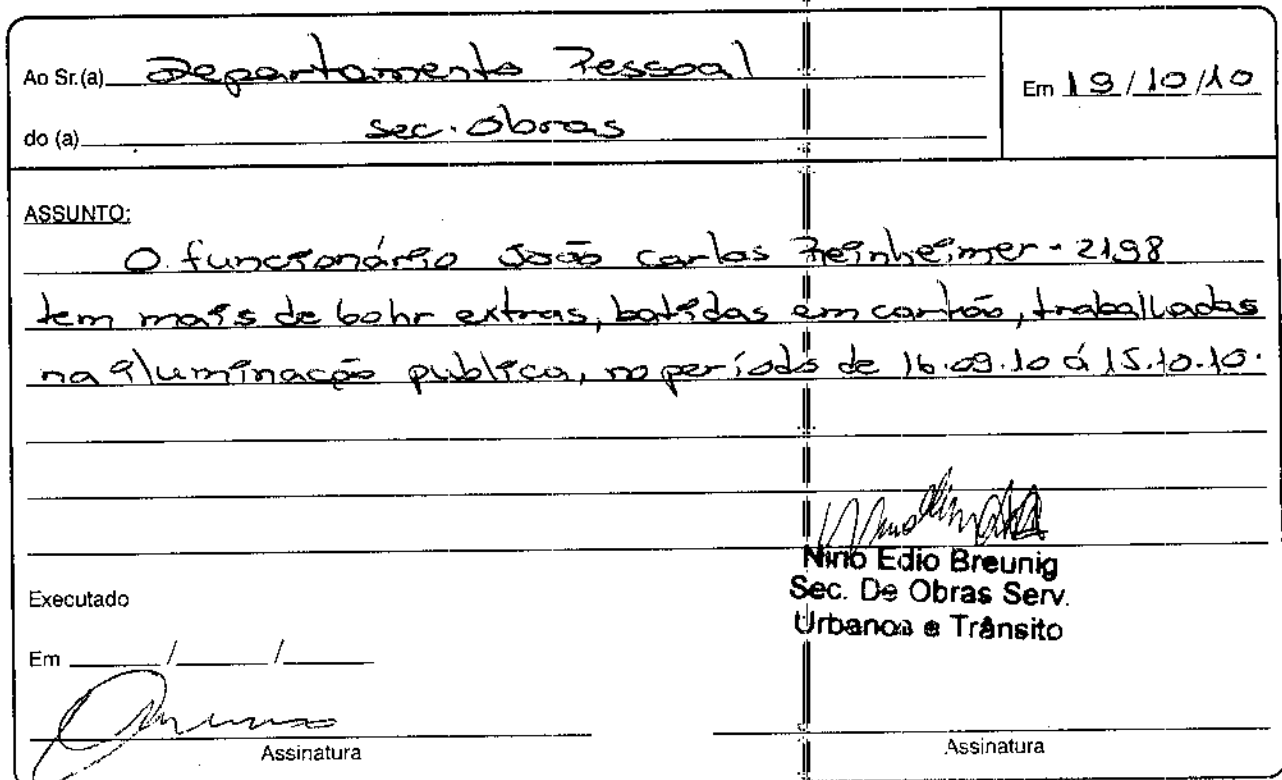 Ao Sr.(a) Departamento Pessoal
Em 19/10/10
do (a) sec. obras
ASSUNTO:
O funcionário João carlos Reinheimer - 2198
tem mais de 60hr extras, batidas em cartão, trabalhadas
na iluminação publica, no período de 16.09.10 á 15.10.10.
Nino Edio Breunig
Sec. De Obras Serv.
Urbanos e Trânsito
Executado
Em / /
Assinatura
Assinatura